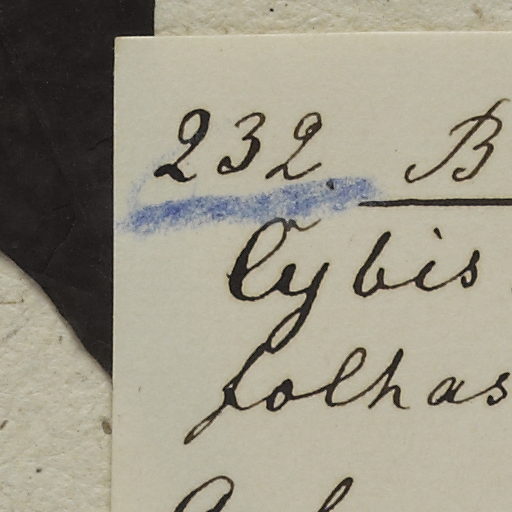 232. B
Cybis
folhas